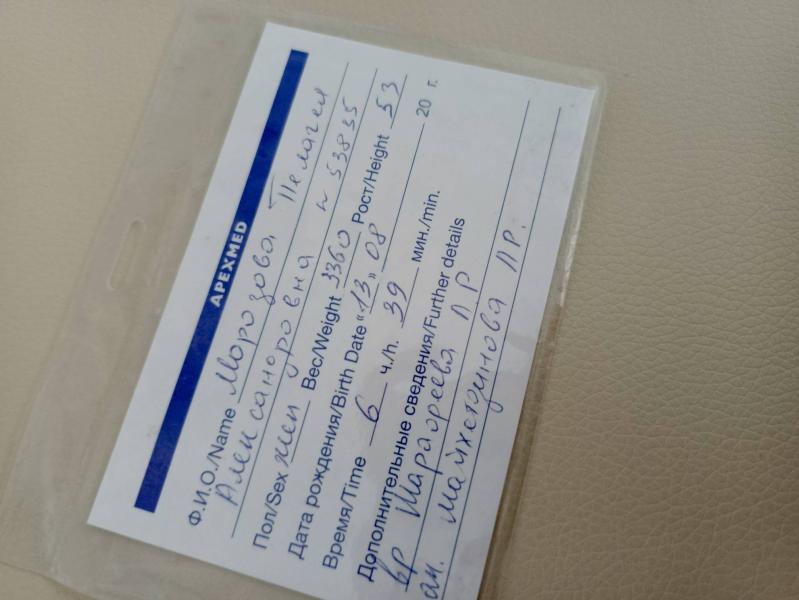 APEXMED
Ф.И.О./Name Морозова Пелагея
Александровна н 53835
Пол/Sex жен Вес/Weight 3360 Рост/Height 53
Дата рождения/Birth Date «13» 08 20 г.
Время/Time 6 ч./h. 39 мин./min.
Дополнительные сведения/Further details
вр Шарафеева Л Р
ак. Майхетдинова Л.Р.